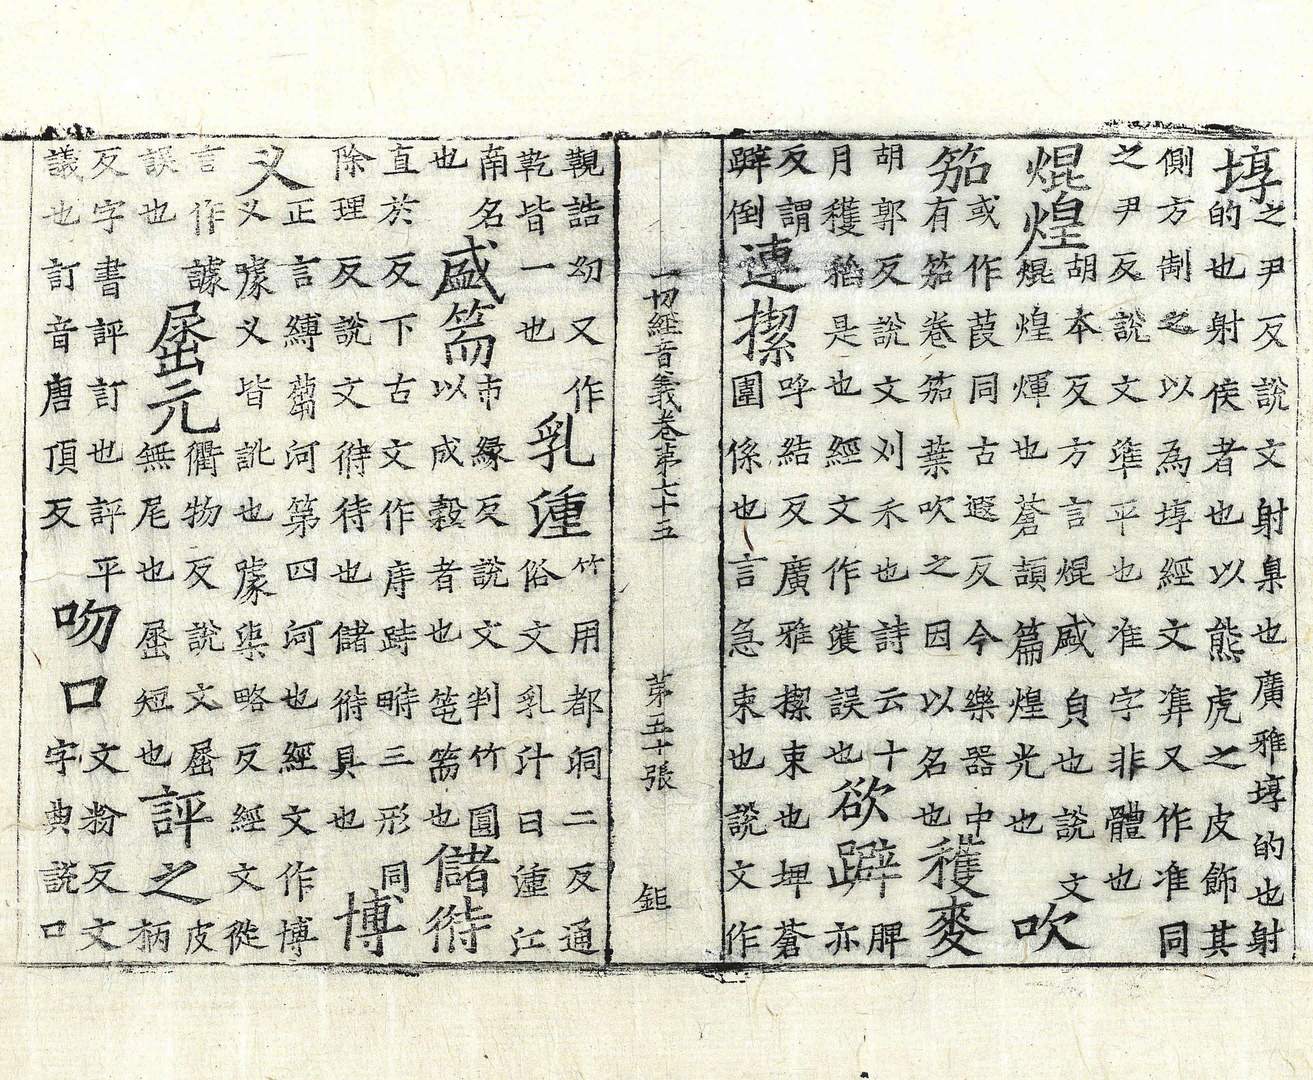 埻之尹反說文射臬也廣雅埻的也射
的也射侯者也以熊虎之皮飾其
側方制之以為埻經文準又作准同
之尹反說文準平也准字非體也
焜煌胡本反方言焜盛皃也說文
焜煌煇也蒼頡篇煌光也吹
笳或作葭同古遐反今樂器中
有笳卷笳葉吹之因以名也穫麥
胡郭反說文刈禾也詩云十
月穫稻是也經文作誤也欲躃脾
亦
反謂
躃倒連呼結反廣雅束也埤蒼
圍係也言急束也說文作
一切經音義卷第七十五 第五十張 鉅
觀誥幼又作
乾皆一也乳湩竹用都洞二反通
俗文乳汁曰湩江
南名
也盛篅市緣反說文判竹圓
以成穀者也篅也儲偫
直於反下古文作庤跱畤三形同
除理反說文偫待也儲偫具也博
叉正言縛蒭河第四河也經文作博
叉據叉皆訛也據渠略反經文從
言作
誤也屈无衢物反說文屈
無尾也屈短也評之皮
柄
反字書評訂也評平
議也訂音唐頂反吻口文粉反文
字典說口